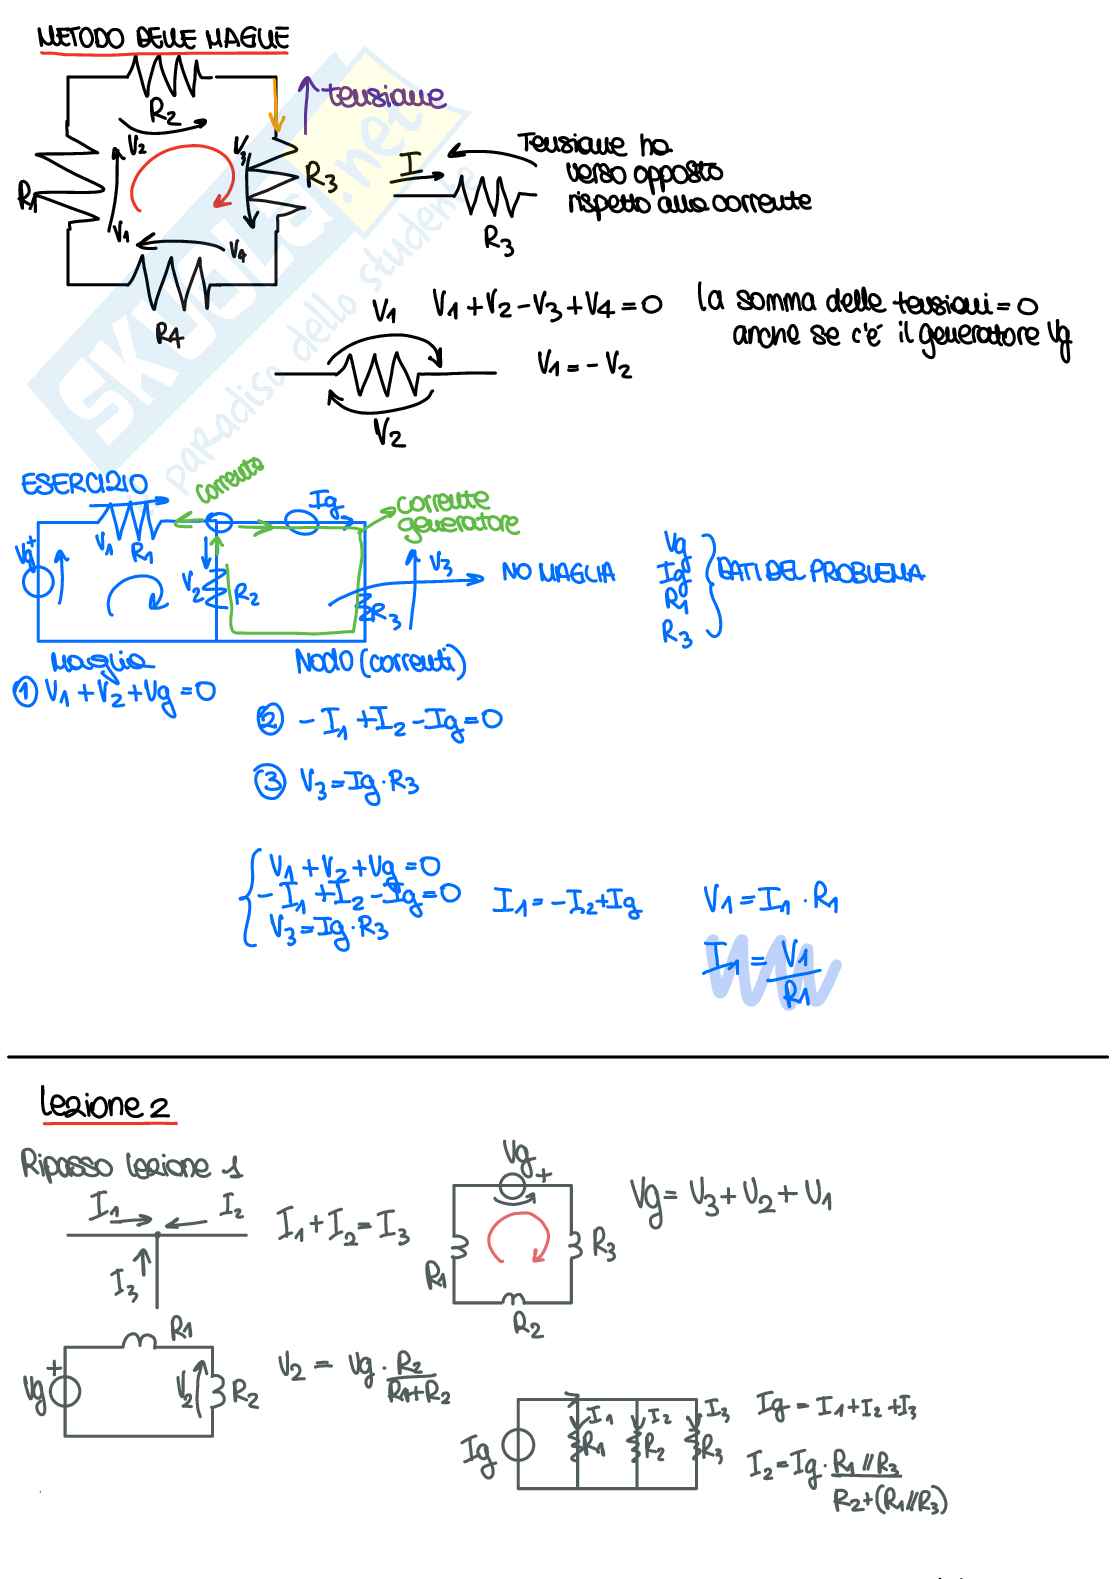 METODO DELLE MAGLIE
R2
tensione
V2
V3
R3
R1
V1
V4
R4
I
R3
Tensione ha
verso opposto
rispetto alla corrente
V1
V1+V2-V3+V4=0
la somma delle tensioni=0
anche se c'è il generatore Vg
V1=-V2
V2
SKUOLA.net
paradiso dello studente
ESERCIZIO
corrente
Ig
corrente
generatore
Vg
+
V1
R1
V2
R2
V3
R3
NO MAGLIA
Vg
Ig
R1
R3
DATI DEL PROBLEMA
Maglia
Nodo (correnti)
① V1+V2+Vg=0
② -I1+I2-Ig=0
③ V3=Ig·R3
V1+V2+Vg=0
-I1+I2-Ig=0
V3=Ig·R3
I1=-I2+Ig
V1=I1·R1
I1=V1/R1
Lezione 2
Ripasso lezione 1
I1
I2
I3
I1+I2=I3
Vg
+
R1
R3
R2
Vg=V3+V2+V1
R1
+
Vg
V2
R2
V2 = Vg·R2/R1+R2
Ig
I1
I2
I3
R1
R2
R3
Ig=I1+I2+I3
I2=Ig·R1//R3/R2+(R1//R3)